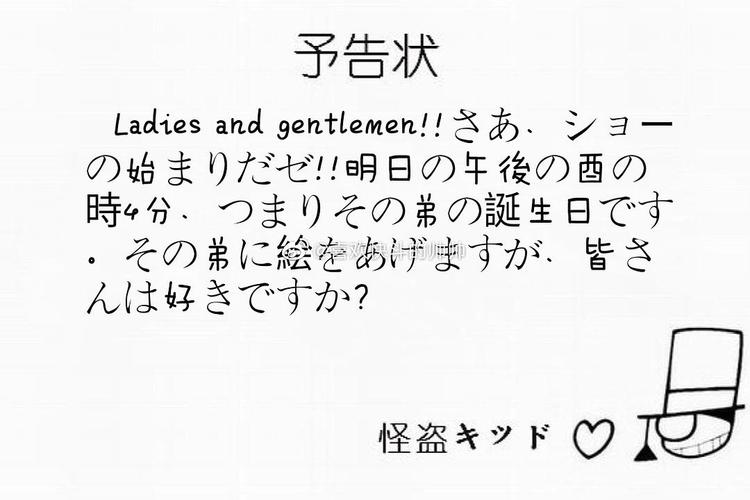 予告状
Ladies and gentlemen!!さあ、ショー
の始まりだゼ!!明日の午後の酉の
時4分、つまりその弟の誕生日です
。その弟に絵をあげますが、皆さ
んは好きですか?
怪盗キッド